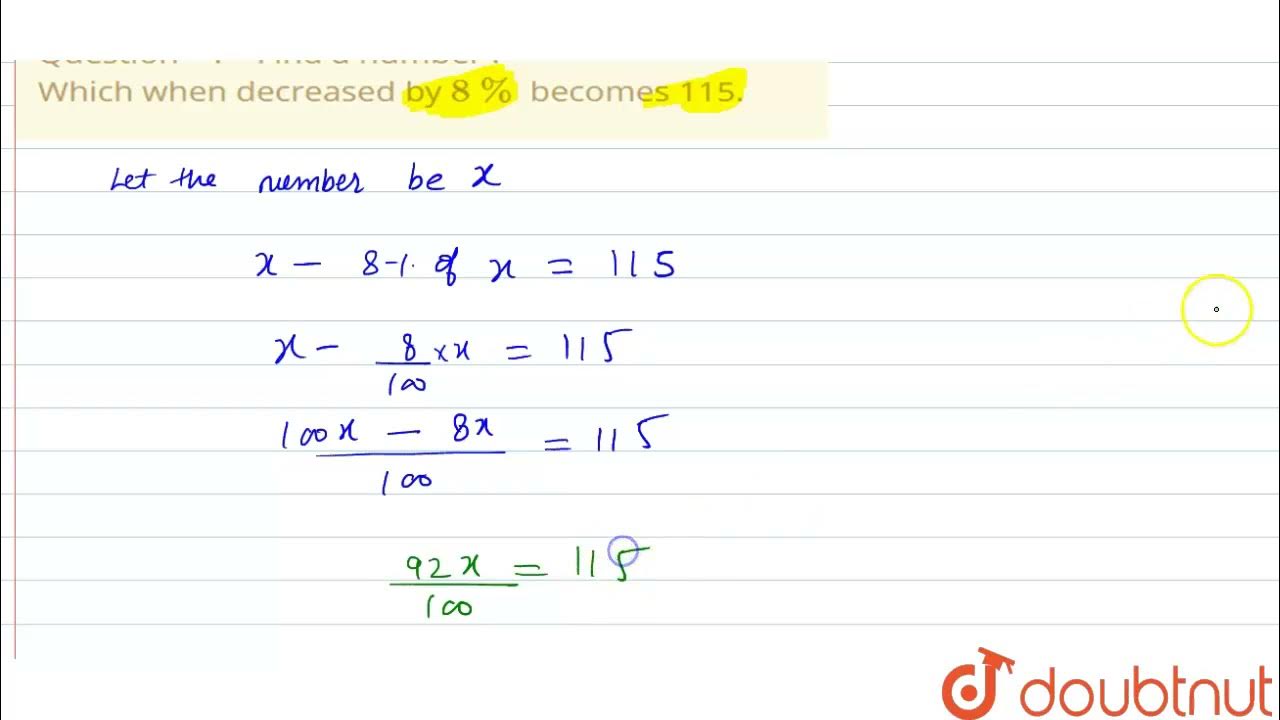 Which when decreased by 8 % becomes 115.
Let the number be x
x - 8-1. of x = 115
x - 8/100 × x = 115
100x - 8x / 100 = 115
92x / 100 = 115
doubtnut